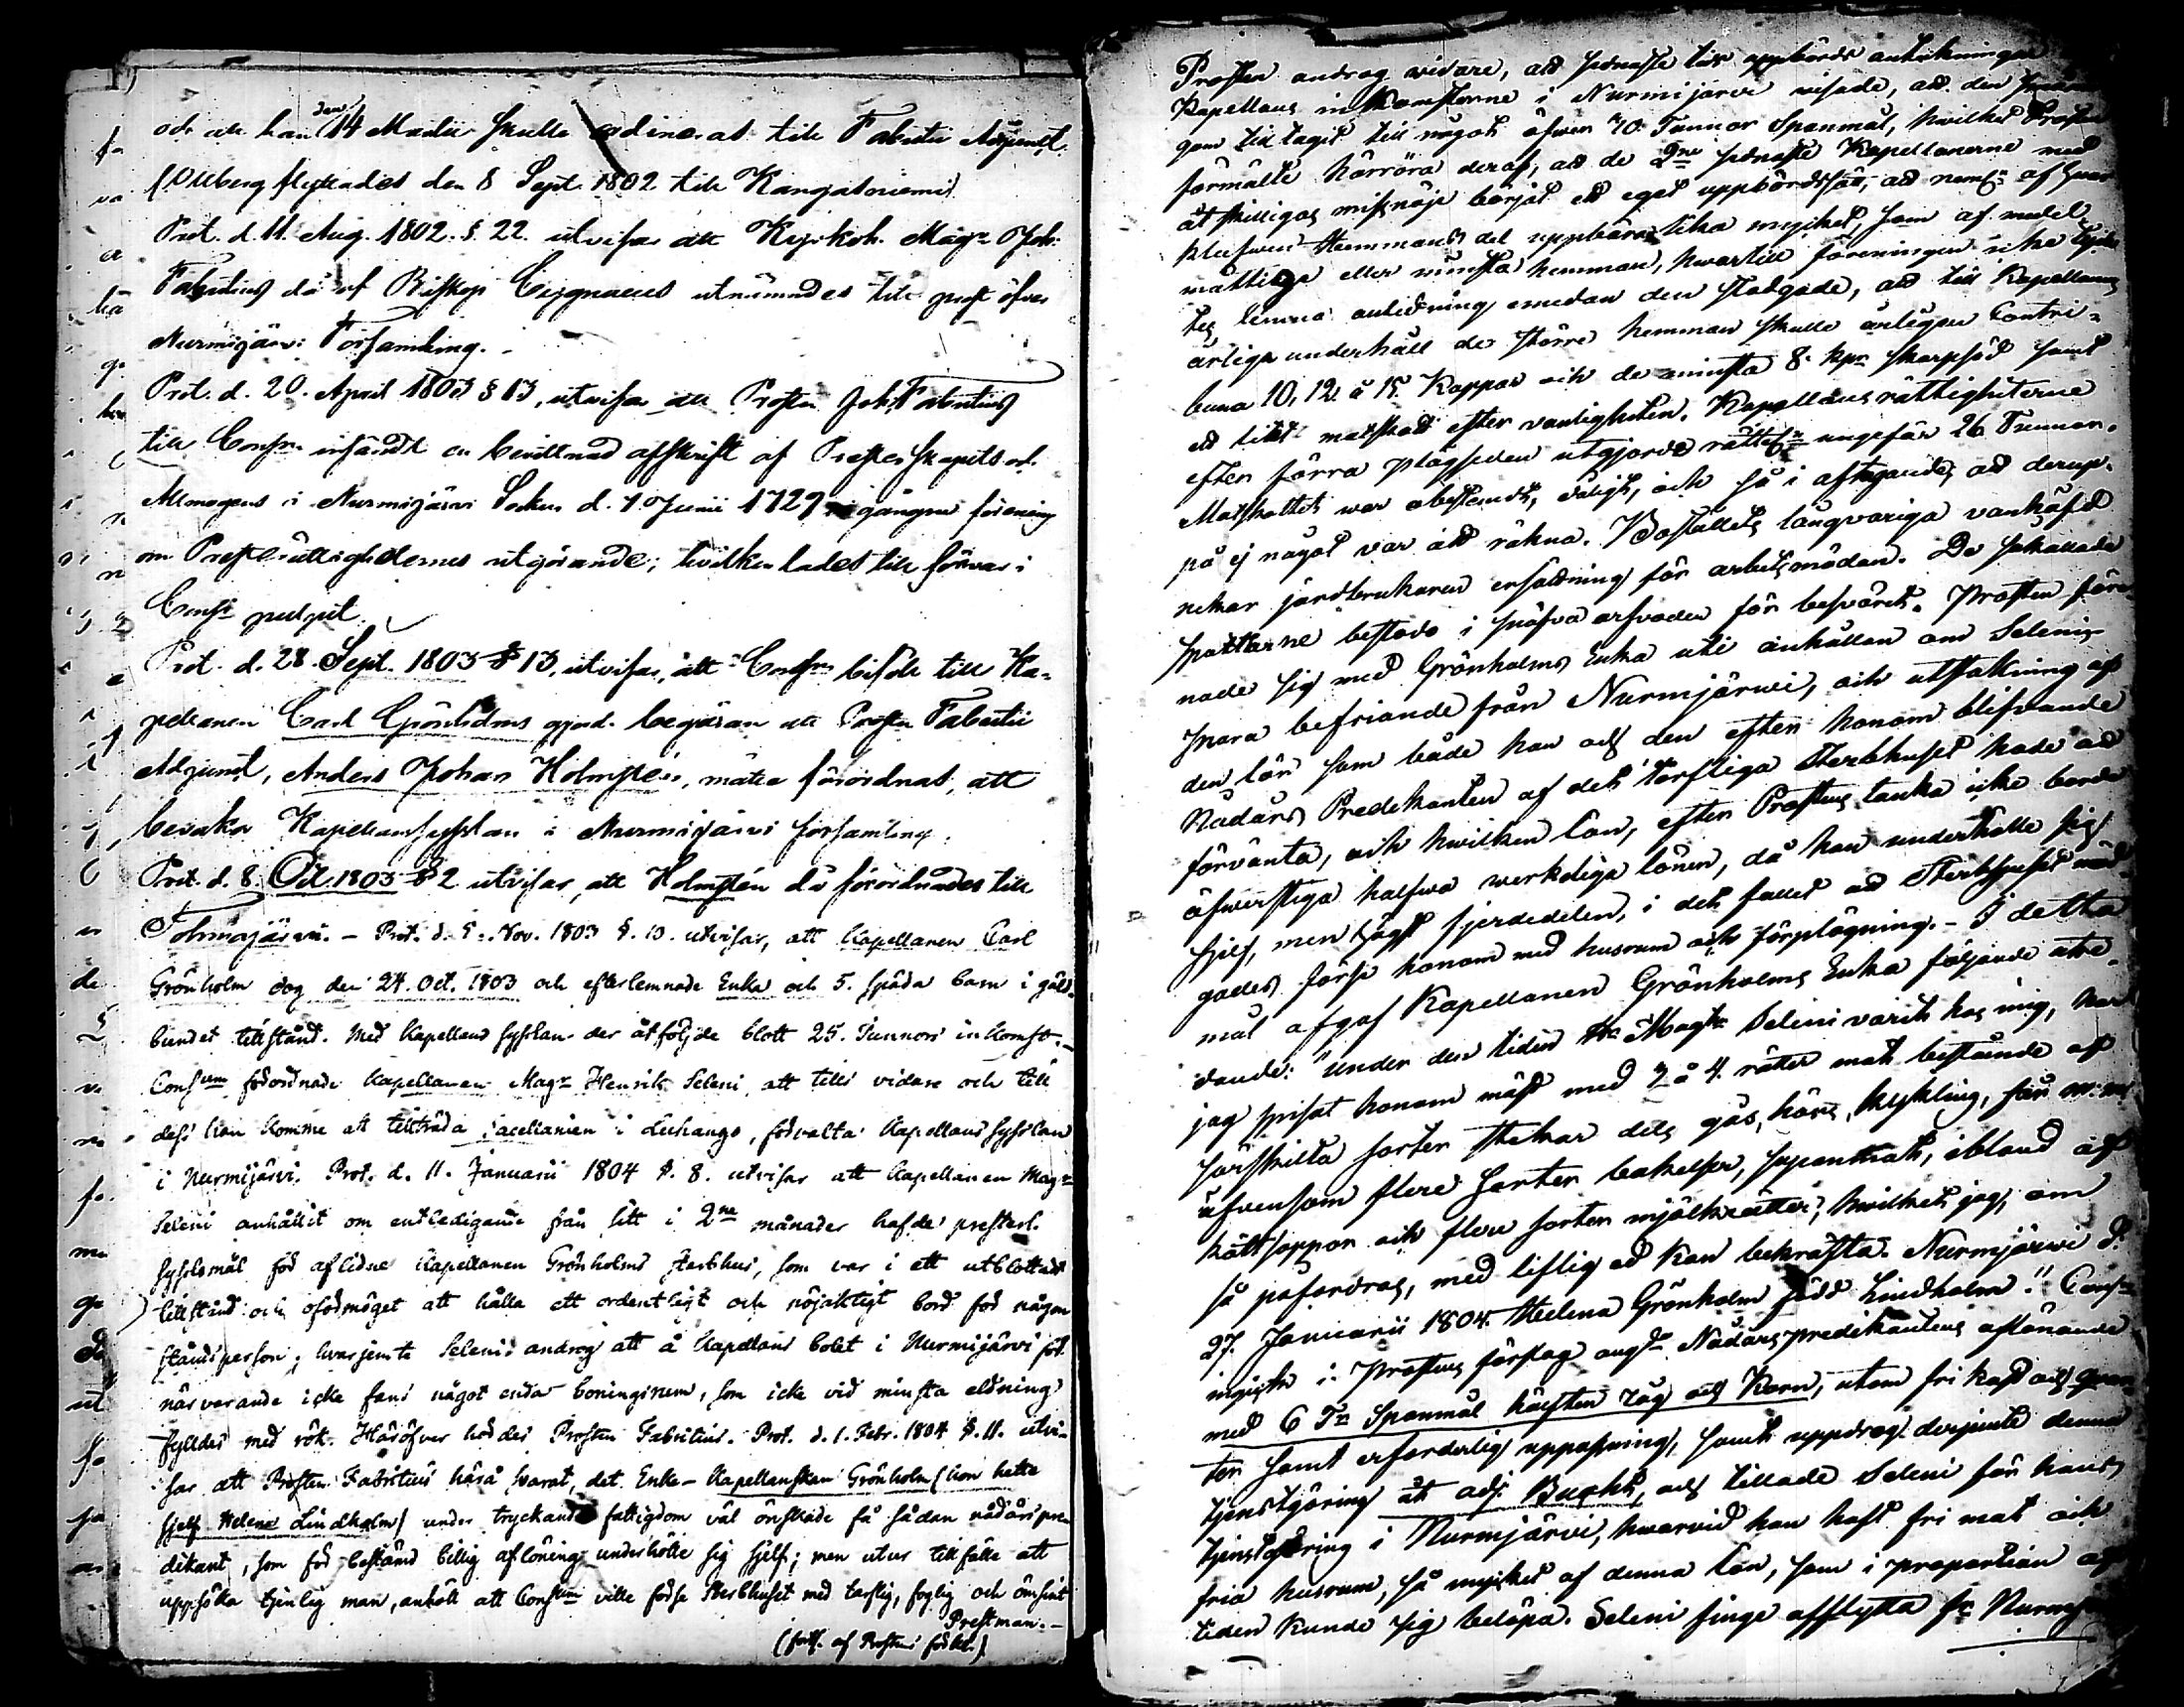 och att han den 14 Martii skulle ordineras till Fabritii Adjunct.
(Ollberg flyttades den 8 Sept. 1802 till Kangasniemi)
Prot. d. 11. Aug. 1802. §. 22. utvisar att Kyrkoh. Magr Joh:
Fabritius då af Biskop Cygnaeus utnämndes till prost öfver
Nurmijärvi Församling. -
Prot. d. 20. April 1803 § 13, utvisar att Prosten Joh. Fabritius
till Consm insändt en bevittnad afskrift af Presterskapets och
Allmogens i Nurmijärvi Socken d. 7 Junii 1729 ingångne förening
om Presterättigheternes utgörande; hvilken lades till förvar i
Consr pulpet.
Prot. d. 28. Sept. 1803 § 13, utvisar, att Consm biföll till Ka-
pellanen Carl Grönholms gjord. begäran att Prosten Fabritii
Adjunct, Anders Johan Holmstén, måtte förordnas, att
bevaka Kapellanssysslan i Nurmijärvi församling.
Prot. d. 8. Oct. 1803 § 2 utvisar, att Holmstén då förordnades till
Tohmajärvi. - Prot. d. 5. Nov. 1803 §. 10. utvisar, att Kapellanen Carl
Grönholm dog den 24. Oct. 1803 och efterlemnade Enka och 5. späda barn i gäld-
bundet tillstånd. Med Kapellans sysslan der åtföljde blott 25. Tunnors inkomst. -
Consum förordnade Kapellanen Magr Henrik Seleni att tills vidare och till
dess han komme att tillträda sacellanien i Luhango, förvalta Kapellans sysslan
i Nurmijärvi. Prot. d. 11. Januarii 1804 §. 8. utvisar att Kapellanen Magr
Seleni anhållit om entledigande från sitt i 2ne månader hafde presterl.
sysslomål för aflidne Kapellanen Grönholms sterbhus, som var i ett utblottadt
tillstånd och oförmöget att hålla ett ordentligt och nöjaktigt bord för någon
ståndsperson; hvarjemte Selenis androg att å Kapellans bolet i Nurmijärvi för
närvarande icke fans något enda boningsrum, som icke vid minsta eldning
fylldes med rök. Häröfver hördes Prosten Fabritius. Prot. d. 1. Febr. 1804 §. 11. utvi-
sar att Prosten Fabritius härå svarat, det Enke-Kapellanskan Grönholm (hon hette
sjelf Helena Lindholm) under tryckande fattigdom väl önskade få sådan nådårspre-
dikant, som för bestämd billig aflöning underhölle sig sjelf; men utur tillfälle att
uppsöka tjenlig man, anhöll att Consum ville förse sterbhuset med tarflig, foglig och ömsint
Prestman. -
(forts. af Prostens förkl.)
Prosten androg vidare, att sednaste tids uppbörds anteckningar
Kapellans inkomsterne i Nurmijärvi visade, att den
gom tilltagit till något öfver 40 Tunnor Spanmål, hvilket Prosten
förmälte härröra deraf, att de 2ne sednaste Kapellanerne med
åtskilligas missnöje börjat ett eget uppbördssätt, att neml. af hvar
klufven Hemmans del uppbära lika mycket, som af medel
måttige eller minsta hemman, hvartill föreningen icke
tes lemna anledning emedan den stadgade, att till Kapellans
årliga underhåll de större hemman skulle årligen Contri-
buera 10, 12 à 15 Kappar och de minsta 8 kpr skarpsäd samt
ett litet matskott efter vanligheten. Kapellans rättigheterne
efter förra plägseden utgjorde rättel. ungefär 26 Tunnor.
Matskottet war obestämdt, dåligt, och så i aftagande, att derup-
på ej något var att räkna. Boställets långvariga vanhäfd
nekar jordbrukaren ersättning för arbetsmödan. De såkallade
spottarne bestodo i snöpa arfvoden för besväret. Prosten före-
nade sig med Grönholms Enka uti anhållan om Selenis
snara befriande från Nurmijärvi, och utstakning af
den lön som både han och den efter honom blifvande
Nådårs Predikanten af det tarfliga Sterbhuset hade att
förvänta, och hvilken lön, efter Prostens tanka icke borde
öfverstiga halfwa werkeliga lönen, då han underhölle sig
sjelf, men högst fjerdedelen, i det fallet att Sterbhuset med
gades förse honom med husrum och förplägning. - I detta
mål afgaf Kapellanen Grönholms Enka följande utlå-
tande: "Under den tiden Hr Magr Seleni varit hos mig, har
jag spisat honom mäst med 3 à 4 rätter mat bestående af
särskilta sorter stekar dels gås, höns, kykling, får m.m.
äfvensom flere sorter bakelser, supanmat, ibland af
köttsoppor och flere sorter mjölkrätter, hvilket jag, om
så påfordras, med liflig ed kan bekräfta. Nurmijärvi d.
27. Januarii 1804. Helena Grönholm född Lindholm." Consm
ingick i Prostens förslag angde Nådårspredikantens aflönande
med 6 Tr Spanmål hälften råg och Korn, utom fri kost och quar-
ter samt erforderlig uppassning, samt uppdrog derjemte denna
tjenstgöring åt adj. Bucht, och tillade Seleni för hans
tjenstgöring i Nurmijärvi, hwarvid han haft fri mat och
fria husrum, så mycket af denna lön, som i proportion af
tiden kunde sig belöpa. Seleni finge afflytta fr. Nurmij